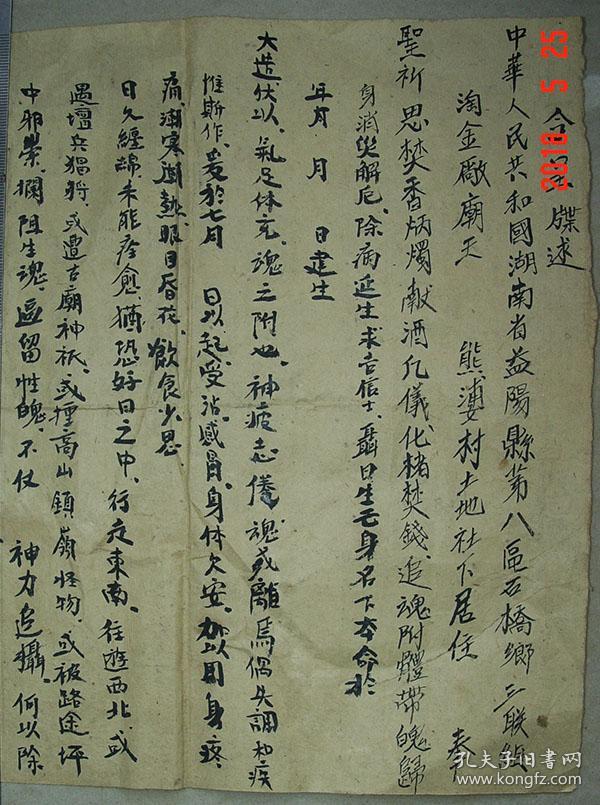 牒述
中華人民共和國湖南省益陽縣第八區石橋鄉三联
淘金廠廟王 熊婆村土地社下居住 奉
聖祈恩焚香炳燭獻酒凡儀化楮焚錢追魂附體帶魄歸
身消災解厄除病延生求吉信士聶日生亡身名下本命於
年月 月 日建生
大造伏以氣足体充魂之附也神疲志倦魂或離焉偶失調和疾
惟斯作爰於七月 日以起受沾感冒身体欠安加以周身疼
痛潮寒潮熱眼目昏花飲食少思
日久纏綿未能痊愈猶恐好日之中行走東南往遊西北或
遇壇兵猖將或遭古廟神祇或撞高山鎮嶺怪物或被路途坪
中邪祟攔阻生魂區留性魄不仗 神力追攝何以除
2010 5 25
孔夫子旧书网
www.kongfz.com